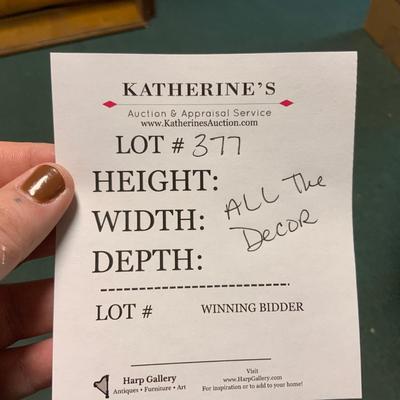 KATHERINE'S
Auction & Appraisal Service
www.KatherinesAuction.com
LOT # 377
HEIGHT:
WIDTH: ALL The
DEPTH: Decor
LOT # WINNING BIDDER
Harp Gallery
Antiques • Furniture • Art
Visit
www.HarpGallery.com
For inspiration or to add to your home!